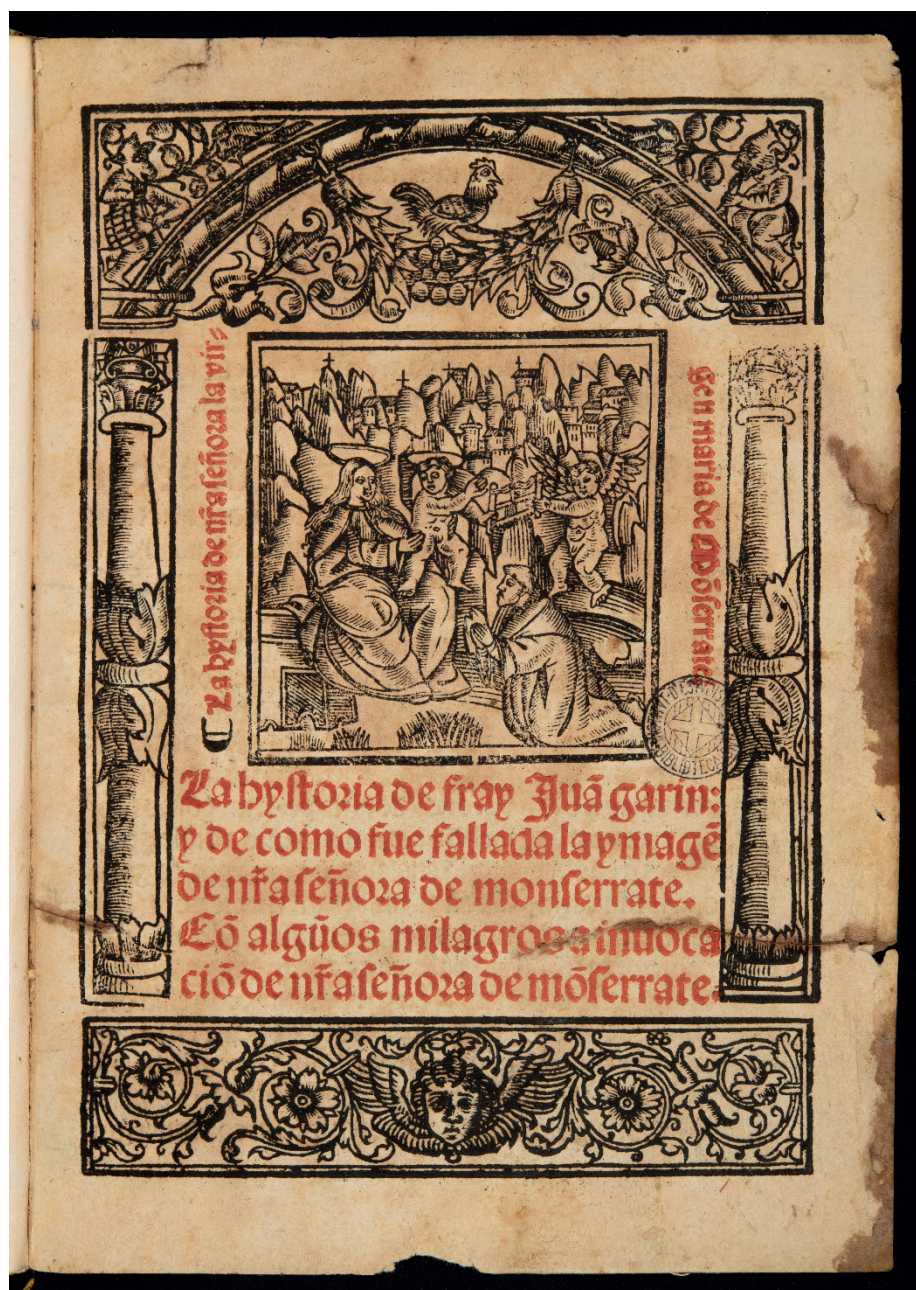 La hystoria de nr̄a señora la vir-
gen maria de Mōserrate.
La hystoria de fray Juā garin:
y de como fue fallada la ymagē
de nr̄a señora de monserrate.
Cō algūos milagros a inuoca
ciō de nr̄a señora de mōserrate.
BIBLIOTECA